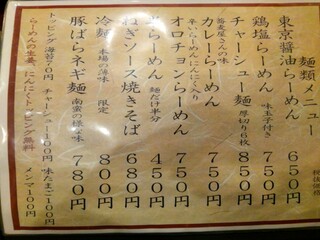 麺類メニュー
東京醤油らーめん 650円
鶏塩らーめん 味玉子付き 750円
チャーシュー麺 厚切り6枚 850円
蕎麦屋さんの味
カレーらーめん 750円
辛いらーめんにんにく入り
オロチョンらーめん 750円
らーめん 麺だけ半分 450円
ねぎソース焼きそば 680円
冷麺 本場の薄味 限定 800円
豚ばらネギ麺 南蛮の様な味 780円
トッピング 海苔50円 チャーシュー100円 味たまご100円
らーめんの生姜、にんにくトッピング無料 メンマ100円